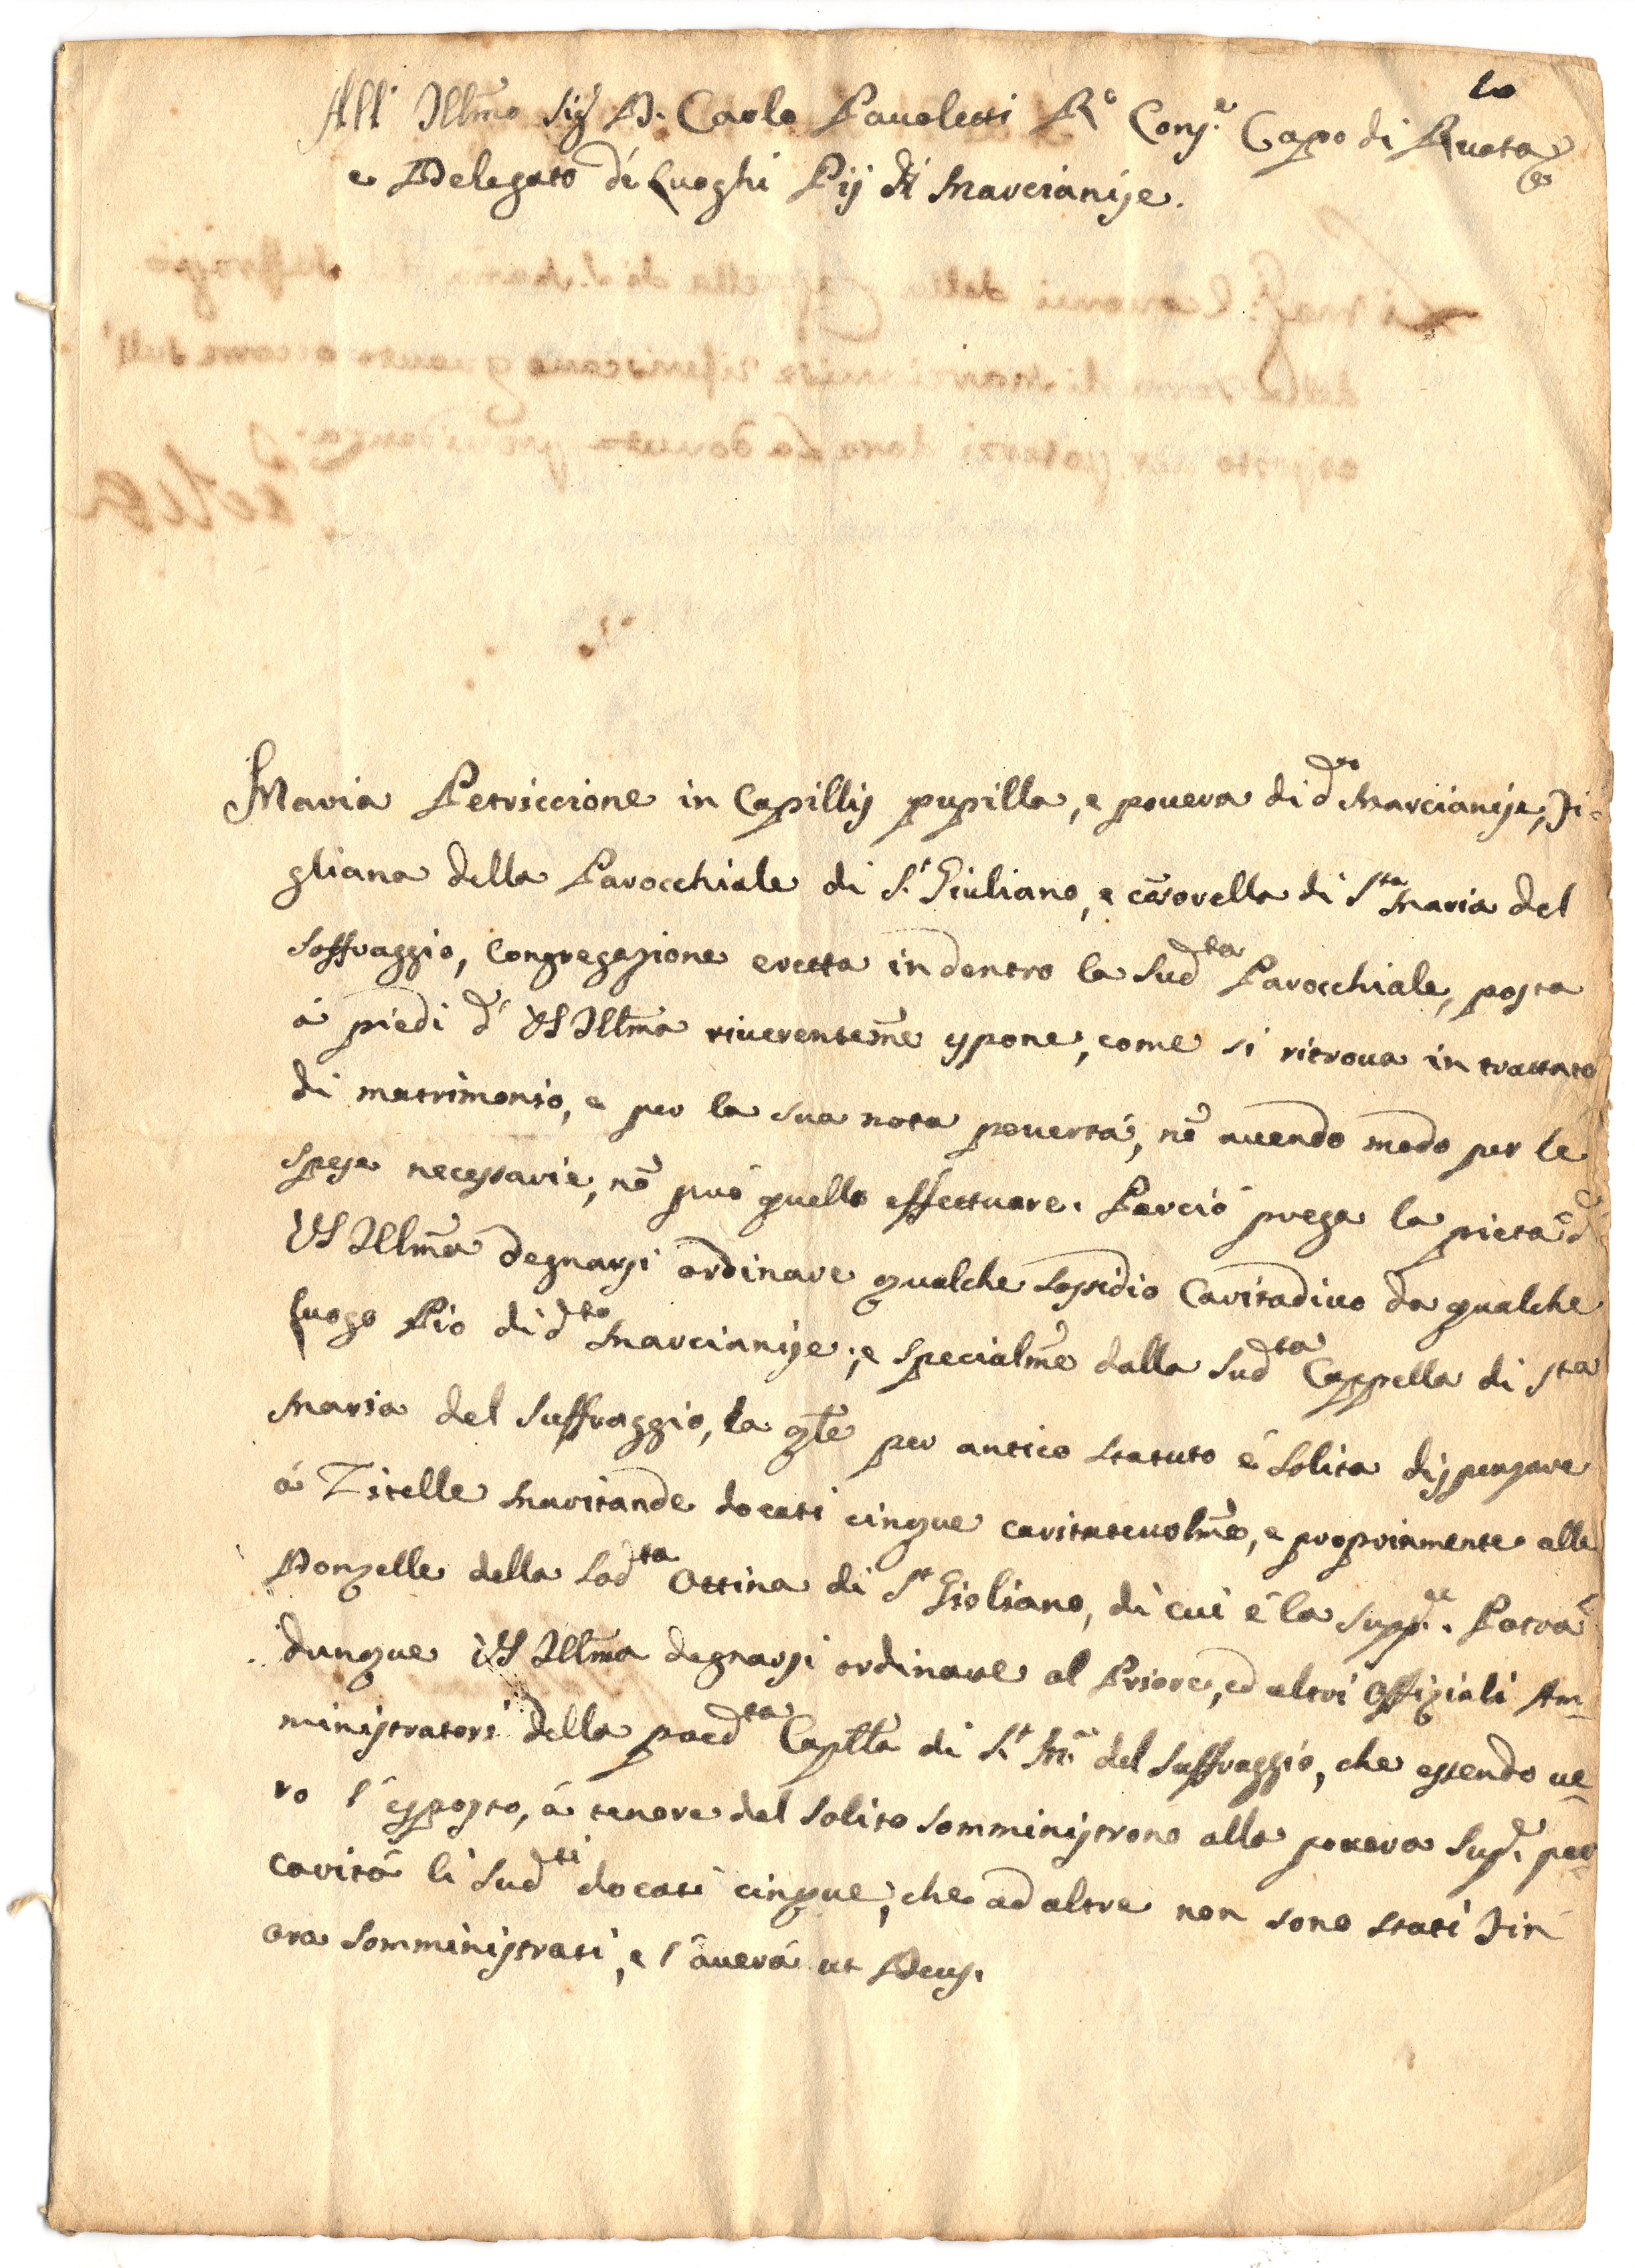 All' Illmo Sig.r D. Carlo Pauoletti R.o Cons.e Capo di Ruota
e Delegato di Luoghi Pij di Marcianise.
Maria Petriccione in Capillis pupilla, e pouera di d.o Marcianise, Fi-
gliana della Parocchiale di S.t Giuliano, e di S.ta Maria del
Soffraggio, Congregazione eretta in dentro la Sud.ta Parocchiale, posta
à piedi d' VS Illma riuerenteme espone, come si ritroua in trattato
di matrimonio, e per la sua nota pouertà, nō auendo modo per le
spese necessarie, nō può quello effettuare. Perciò prega la pietà d
VS Illma degnarsi ordinare qualche Sossidio Caritadiuo da qualche
Luogo Pio di d.to Marcianise; e specialme dalla Sud.ta Cappella di S.ta
Maria del Suffraggio, la qle per antico statuto è solita dispenzare
à Zitelle maritande docati cinque caritateuolme, e propriamente alle
Donzelle della Sod.ta Ottina di S.t Gioliano, di cui è la supp.te. Potrà
dunque VS Illma degnarsi ordinare al Priore, ed altri Offiziali Am-
ministratori della pred.ta Caplla di S.t M.a del Suffraggio, che essendo ue-
ro l' esposto, à tenore del solito somministrono alla pouera Sup.e per
carità li Sud.ti docati cinque, che ad altre non sono stati fin
ora somministrati, e l' auerà ut Deus.